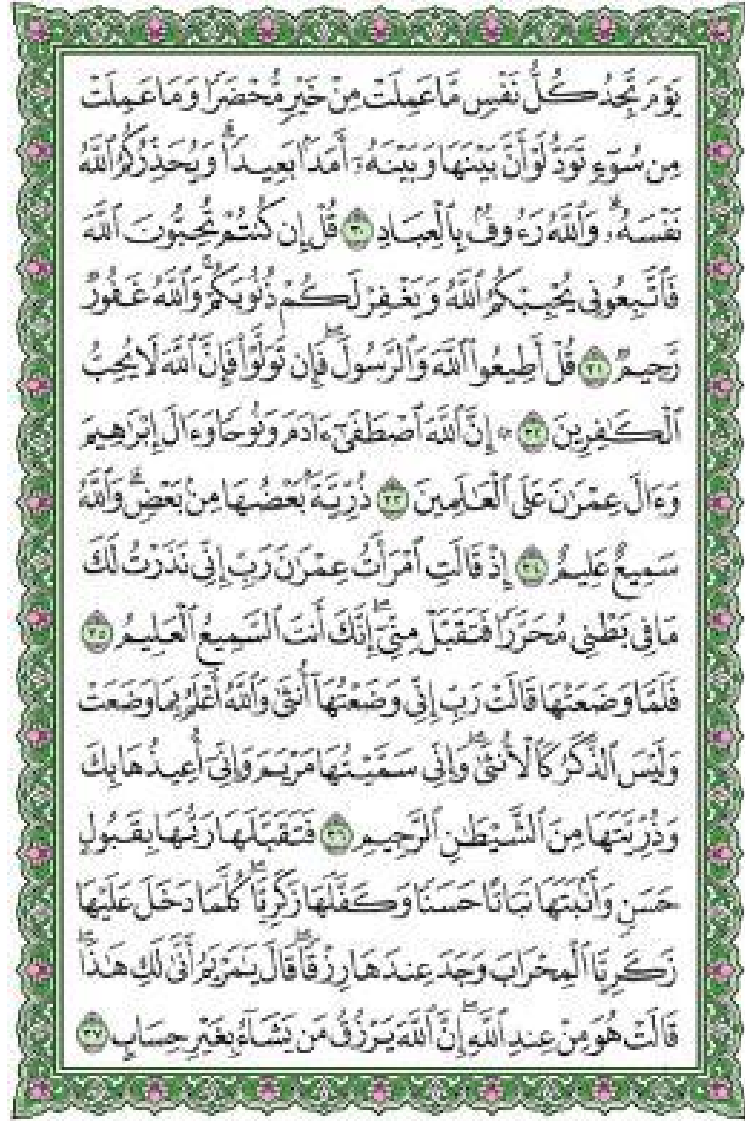 يَوْمَ تَجِدُ كُلُّ نَفْسٍ مَّا عَمِلَتْ مِنْ خَيْرٍ مُّحْضَرًا وَمَا عَمِلَتْ
مِن سُوٓءٍ تَوَدُّ لَوْ أَنَّ بَيْنَهَا وَبَيْنَهُۥٓ أَمَدًۢا بَعِيدًا ۗ وَيُحَذِّرُكُمُ ٱللَّهُ
نَفْسَهُۥ ۗ وَٱللَّهُ رَءُوفُۢ بِٱلْعِبَادِ ٣٠ قُلْ إِن كُنتُمْ تُحِبُّونَ ٱللَّهَ
فَٱتَّبِعُونِى يُحْبِبْكُمُ ٱللَّهُ وَيَغْفِرْ لَكُمْ ذُنُوبَكُمْ ۗ وَٱللَّهُ غَفُورٌ
رَّحِيمٌ ٣١ قُلْ أَطِيعُوا۟ ٱللَّهَ وَٱلرَّسُولَ ۖ فَإِن تَوَلَّوْا۟ فَإِنَّ ٱللَّهَ لَا يُحِبُّ
ٱلْكَـٰفِرِينَ ٣٢ ۞ إِنَّ ٱللَّهَ ٱصْطَفَىٰٓ ءَادَمَ وَنُوحًا وَءَالَ إِبْرَٰهِيمَ
وَءَالَ عِمْرَٰنَ عَلَى ٱلْعَـٰلَمِينَ ٣٣ ذُرِّيَّةًۢ بَعْضُهَا مِنۢ بَعْضٍ ۗ وَٱللَّهُ
سَمِيعٌ عَلِيمٌ ٣٤ إِذْ قَالَتِ ٱمْرَأَتُ عِمْرَٰنَ رَبِّ إِنِّى نَذَرْتُ لَكَ
مَا فِى بَطْنِى مُحَرَّرًا فَتَقَبَّلْ مِنِّىٓ ۖ إِنَّكَ أَنتَ ٱلسَّمِيعُ ٱلْعَلِيمُ ٣٥
فَلَمَّا وَضَعَتْهَا قَالَتْ رَبِّ إِنِّى وَضَعْتُهَآ أُنثَىٰ وَٱللَّهُ أَعْلَمُ بِمَا وَضَعَتْ
وَلَيْسَ ٱلذَّكَرُ كَٱلْأُنثَىٰ ۖ وَإِنِّى سَمَّيْتُهَا مَرْيَمَ وَإِنِّىٓ أُعِيذُهَا بِكَ
وَذُرِّيَّتَهَا مِنَ ٱلشَّيْطَـٰنِ ٱلرَّجِيمِ ٣٦ فَتَقَبَّلَهَا رَبُّهَا بِقَبُولٍ
حَسَنٍ وَأَنۢبَتَهَا نَبَاتًا حَسَنًا وَكَفَّلَهَا زَكَرِيَّا ۖ كُلَّمَا دَخَلَ عَلَيْهَا
زَكَرِيَّا ٱلْمِحْرَابَ وَجَدَ عِندَهَا رِزْقًا ۖ قَالَ يَـٰمَرْيَمُ أَنَّىٰ لَكِ هَـٰذَا ۖ
قَالَتْ هُوَ مِنْ عِندِ ٱللَّهِ ۖ إِنَّ ٱللَّهَ يَرْزُقُ مَن يَشَآءُ بِغَيْرِ حِسَابٍ ٣٧